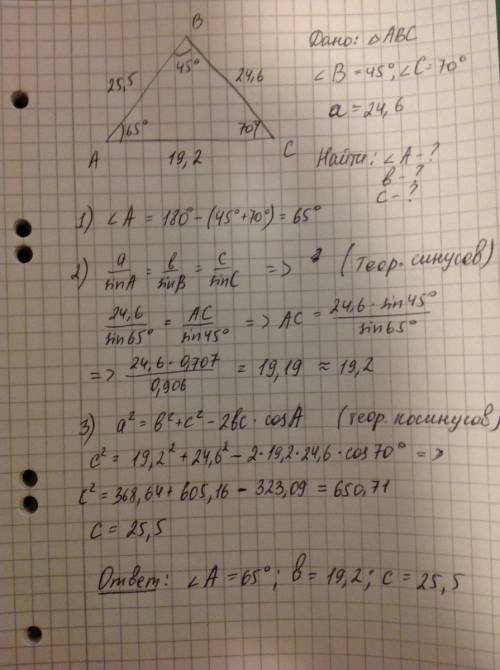 B
Дано: △ABC
25,5 45° 24,6
∠B = 45°, ∠C = 70°
a = 24,6
65° 70°
A 19,2 C
Найти: ∠A - ?
в - ?
с - ?
1) ∠A = 180° - (45° + 70°) = 65°
2) a/sinA = в/sinB = c/sinC => (теор. синусов)
24,6/sin65° = AC/sin45° => AC = 24,6 · sin45°/sin65°
=> 24,6 · 0,707/0,906 = 19,19 ≈ 19,2
3) a² = в² + c² - 2вc · cosA (теор. косинусов)
c² = 19,2² + 24,6² - 2 · 19,2 · 24,6 · cos70° =>
c² = 368,64 + 605,16 - 323,09 = 650,71
c = 25,5
Ответ: ∠A = 65°; в = 19,2; c = 25,5